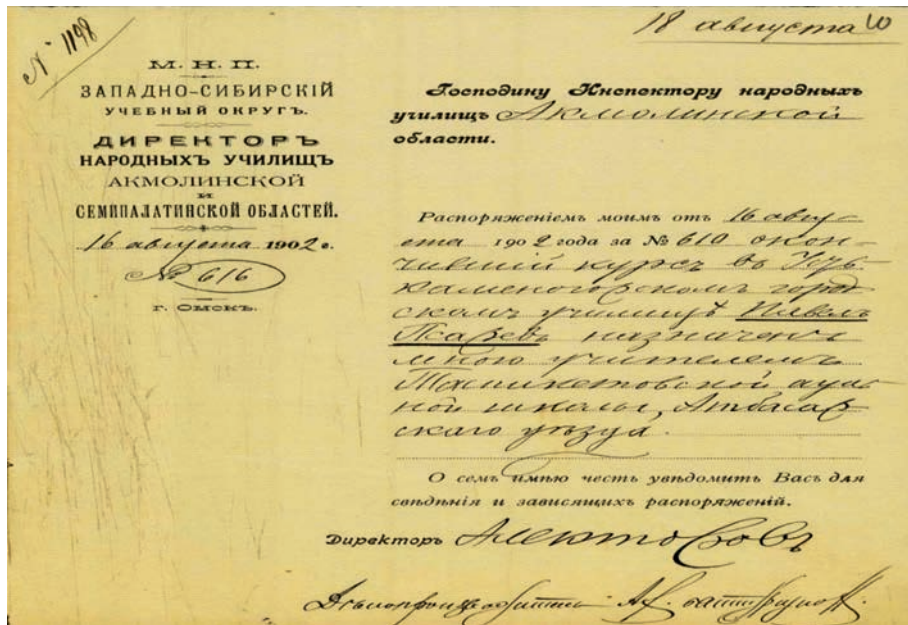 № 1198
18 августа
М. Н. П.
ЗАПАДНО-СИБИРСКІЙ
УЧЕБНЫЙ ОКРУГЪ.
ДИРЕКТОРЪ
НАРОДНЫХЪ УЧИЛИЩЪ
АКМОЛИНСКОЙ
И
СЕМИПАЛАТИНСКОЙ ОБЛАСТЕЙ.
16 августа 1902 г.
№ 616
Г. ОМСКЪ.
Господину Инспектору народныхъ
училищъ Акмолинской
области.
Распоряженіемъ моимъ отъ 16 авгу-
ста 1902 года за № 610 окон-
чившій курсъ въ Усть-
каменогорскомъ город-
скомъ училищѣ Павелъ
Псаревъ назначенъ
мною учителемъ
аул-
ной школы, Атбасар-
скаго уѣзда.
О семъ имѣю честь увѣдомить Васъ для
свѣдѣнія и зависящихъ распоряженій.
Директоръ Алекторовъ
Дѣлопроизводитель